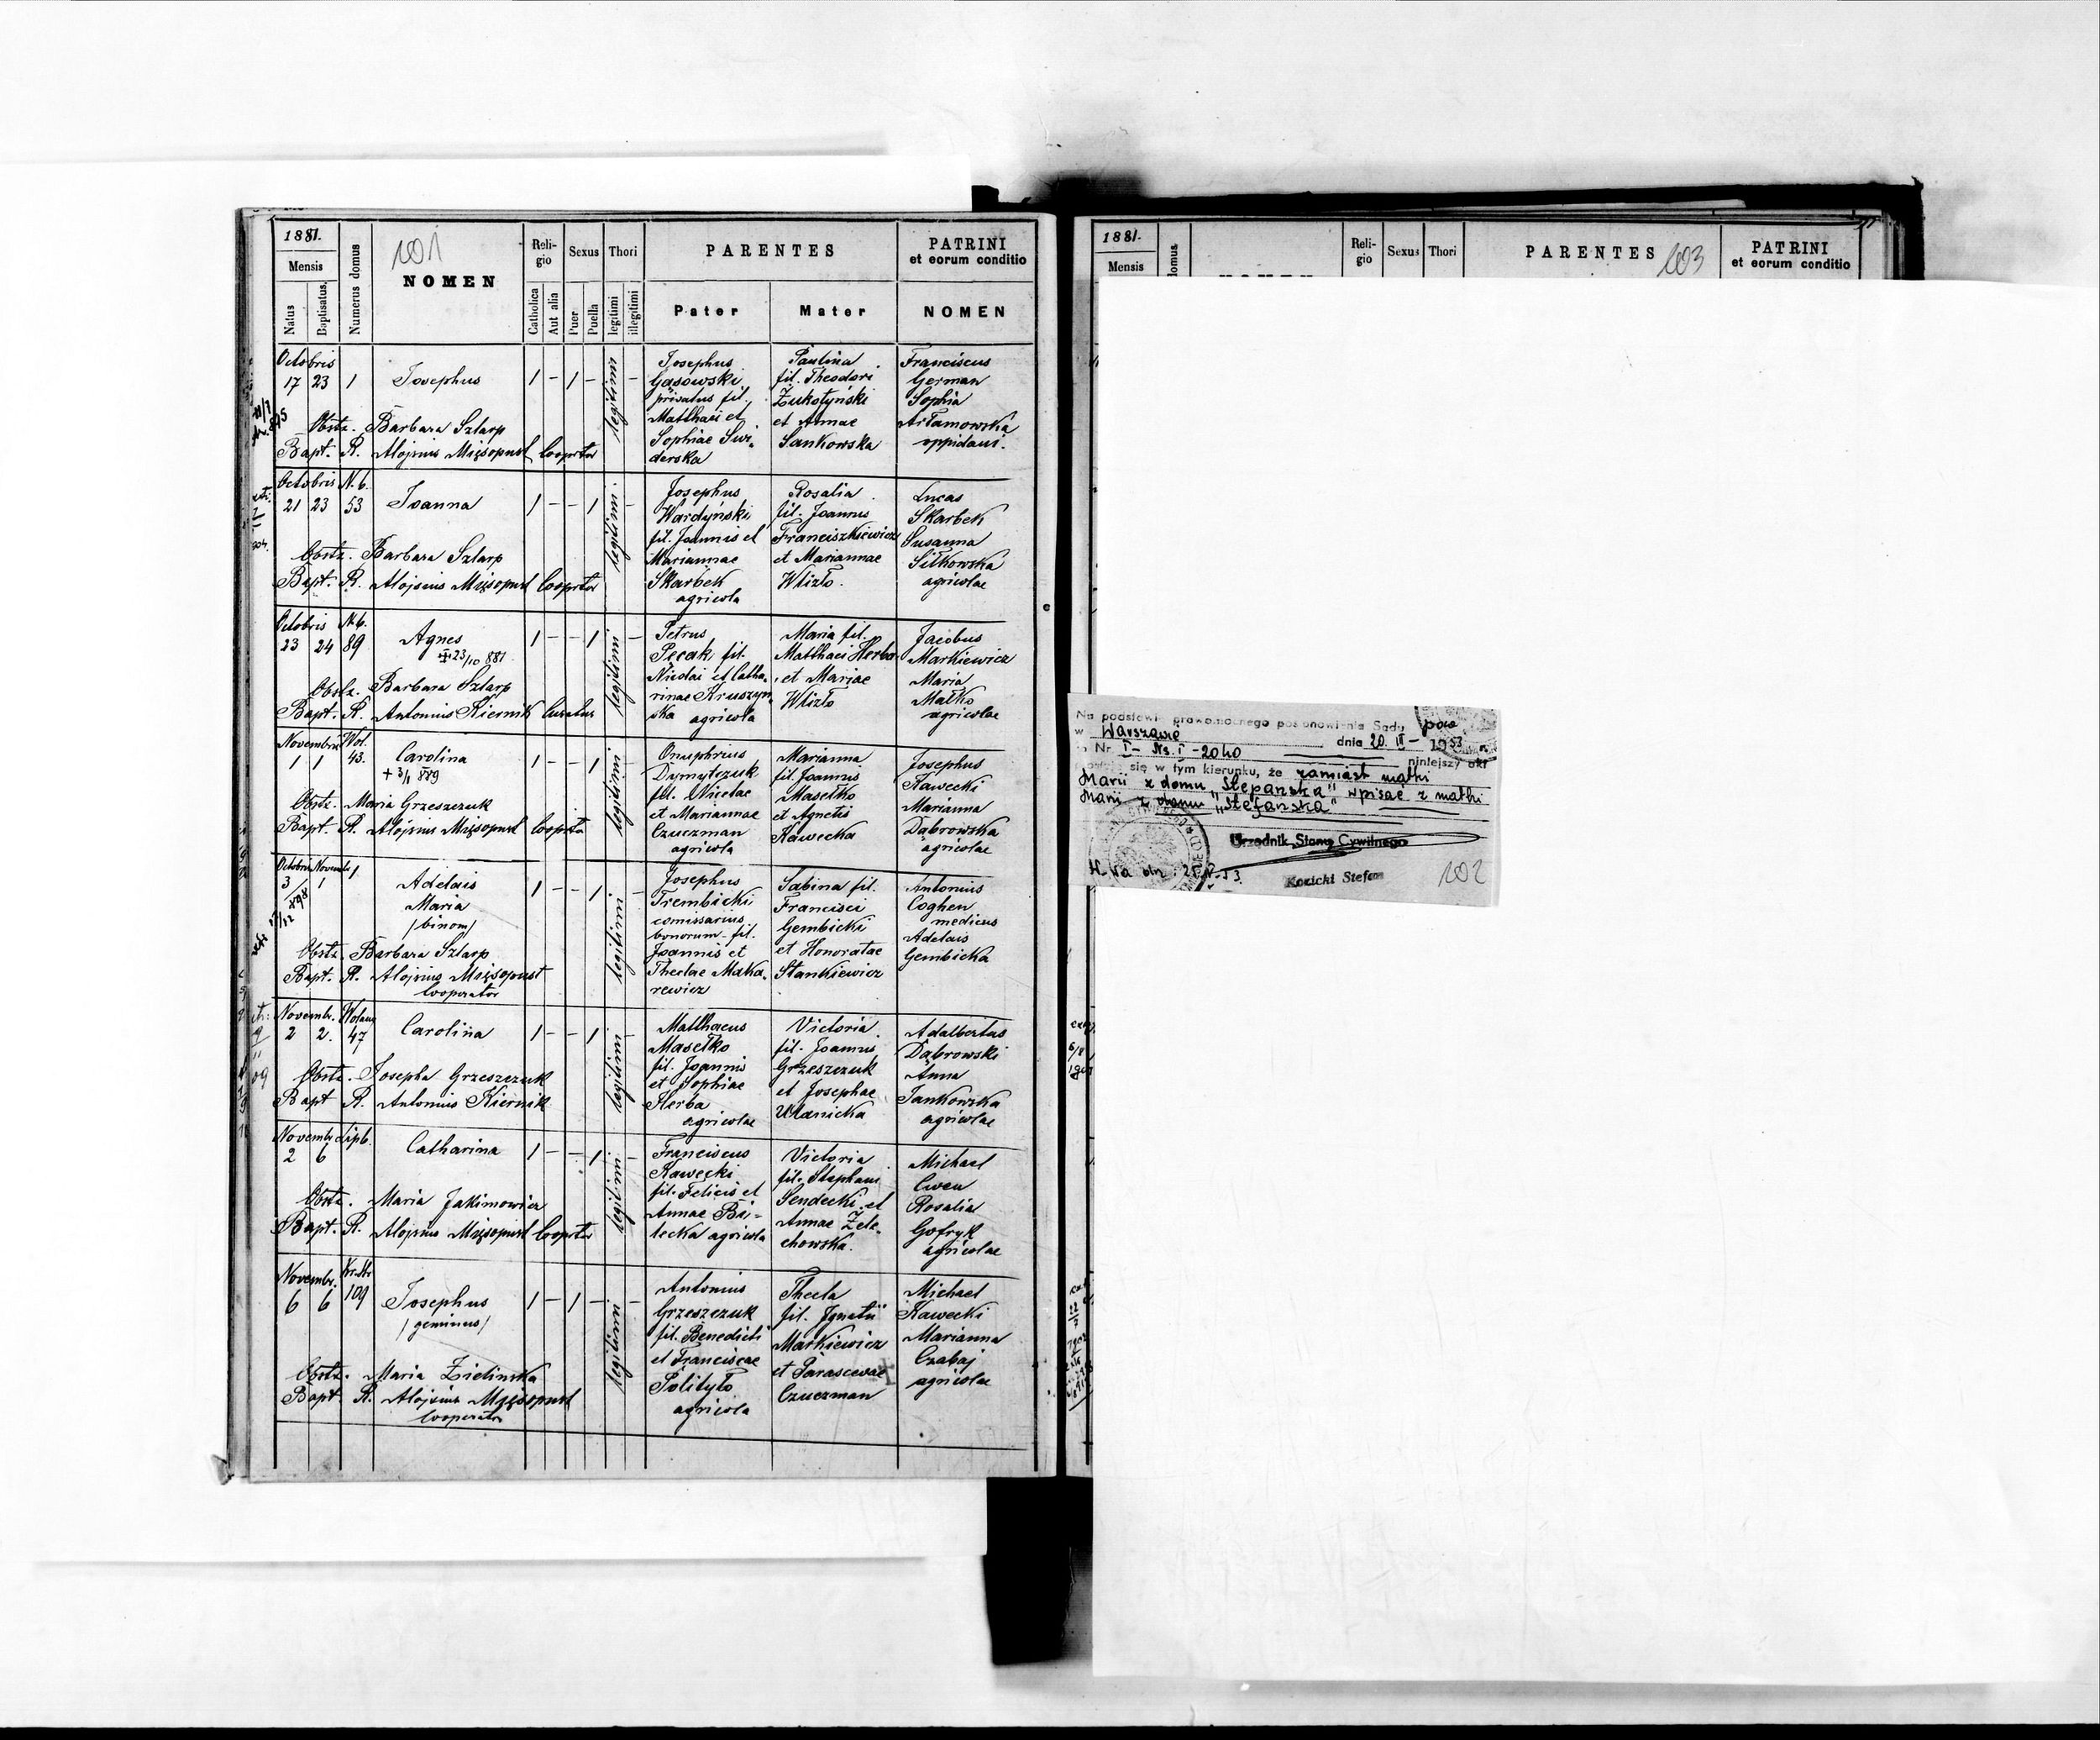 1881.
101
Mensis
Natus
Baptisatus
Numerus domus
NOMEN
Reli-
gio
Catholica
Aut alia
Sexus
Puer
Puella
Thori
legitimi
illegitimi
PARENTES
Pater
Mater
PATRINI
et eorum conditio
NOMEN
Octobris
17 23 1 Josephus 1 - 1 - legitimi -
Obstz. Barbara Szlarp
Bapt. R. Alojsius Mięsopust Cooprtor
Josephus
Gąsowski
privatus fil.
Matthaei et
Sophiae Swi-
derska
Paulina
fil. Theodori
Żukotyński
et Annae
Sankowska
Franciscus
German
Sophia
Artamowska
oppidani.
Octobris N. 6.
21 23 53 Joanna 1 - - 1 legitimi -
Obstz. Barbara Szlarp
Bapt. R. Alojsius Mięsopust Cooprtor
Josephus
Wardyński
fil. Joannis et
Mariannae
Skarbek
agricola
Rosalia
fil. Joannis
Franciszkiewicz
et Mariannae
Wlizło.
Lucas
Skarbek
Susanna
Sitkowska
agricolae
Octobris N. 6.
23 24 89 Agnes 1 - - 1 legitimi -
23/10 881
Obstz. Barbara Szlarp
Bapt. R. Antonius Kiernik Curatus
Petrus
Pecak fil.
Nicolai et Catha-
rinae Kruszyn-
ska agricola
Maria fil.
Matthaei Herba
et Mariae
Wlizło
Jacobus
Markiewicz
Maria
Małko
agricolae
Novembris Wol.
1 1 43. Carolina 1 - - 1 legitimi -
+ 3/1 889
Obstz. Maria Grzeszczuk
Bapt. R. Alojsius Mięsopust Cooprtor
Onuphrius
Dymytczuk
fil. Nicetae
et Mariannae
Czuczman
agricola
Marianna
fil. Joannis
Masełko
et Agnetis
Kawecka
Josephus
Kawecki
Marianna
Dąbrowska
agricolae
Octobris Novemb. 1
3 1 Adelais 1 - - 1 legitimi -
Maria
/binom/
Obstz. Barbara Szlarp
Bapt. R. Alojsius Mięsopust
Cooperator
Josephus
Trembicki
comissarius
bonorum fil.
Joannis et
Theclae Maka-
rewicz
Sabina fil.
Francisci
Gembicki
et Honoratae
Stankiewicz
Antonius
Coghen
medicus
Adelais
Gembicka
Novembr. Wolana
2 2. 47 Carolina 1 - - 1 legitimi -
Obstz. Josepha Grzeszczuk
Bapt R. Antonius Kiernik
Matthaeus
Masełko
fil. Joannis
et Sophiae
Herba
agricolae
Victoria
fil. Joannis
Grzeszczuk
et Josephae
Ulanicka
Adalbertus
Dąbrowski
Anna
Jankowska
agricolae
Novembr. Lipb.
2 6 Catharina 1 - - 1 legitimi -
Obstz. Maria Jakimowicz
Bapt. R. Alojsius Mięsopust Cooprtor
Franciscus
Kawecki
fil. Felicis et
Annae Bi-
lecka agricola
Victoria
fil. Stephani
Sendecki et
Annae Żele-
chowska.
Michael
Cwen
Rosalia
Gofryk
agricolae
Novembr.
6 6 109 Josephus 1 - 1 - legitimi -
/geminus/
Obstz. Maria Zielinska
Bapt. R. Alojsius Mięsopust
Cooperator
Antonius
Grzeszczuk
fil. Benedicti
et Franciscae
Polityło
agricola
Thecla
fil. Ignatii
Markiewicz
et Parascevae
Czuczman
Michael
Kawecki
Marianna
Czabaj
agricolae
1881.
Mensis
domus
Reli-
gio
Sexus
Thori
PARENTES
103
PATRINI
et eorum conditio
Na podstawie prawomocnego postanowienia Sądu pow
w Warszawie dnia 20. III - 1953 r.
Nr. I - Ns. I - 2040 niniejszy akt
się w tym kierunku, że zamiast matki
Marii z domu "Stepańska" wpisać z matki
Marii z domu "Stefańska"
Urzednik Stanu Cywilnego
Kozicki Stefan
102